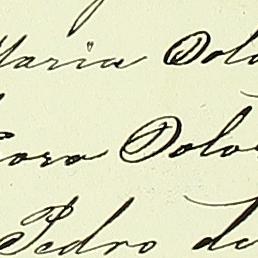 Maria Dolo
Rosa Dolo
Pedro de